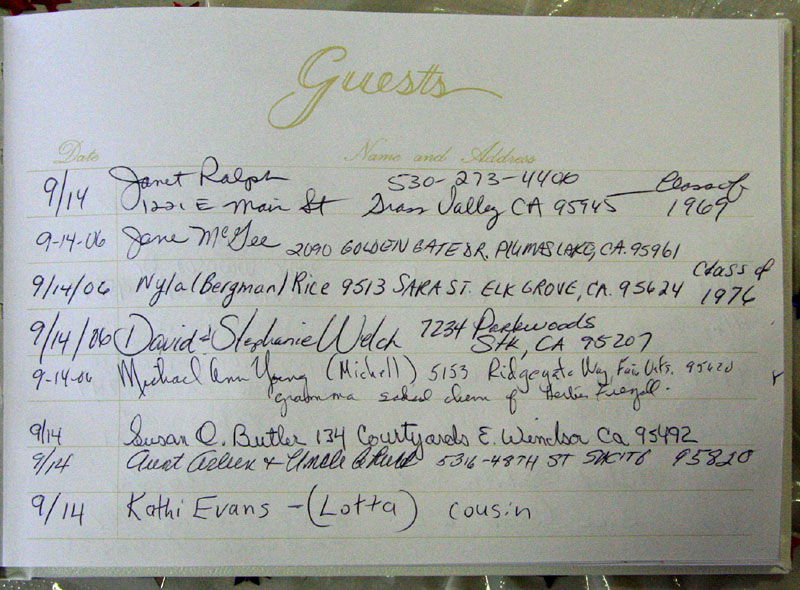 Guests
Date Name and Address
9/14 Janet Ralph 530-273-4406 Class of
1221 E Main St Grass Valley CA 95945 1969
9-14-06 Jane McGee 2090 GOLDEN GATE DR. PLUMAS LAKE, CA. 95961
9/14/06 Nyla (Bergman) Rice 9513 SARA ST. ELK GROVE, CA. 95624 Class of 1976
9/14/06 David & Stephanie Welch 7234 Parkwoods
Stk, CA 95207
9-14-06 Michael Ann Young (Mickell), 5153 Ridgegate Way, Fair Oaks. 95620
gramma school chum of
9/14 Susan O. Butler 134 Courtyards E. Windsor Ca 95492
9/14 Aunt & Uncle 5316-48TH ST 95820
9/14 Kathi Evans - (Lotta) cousin